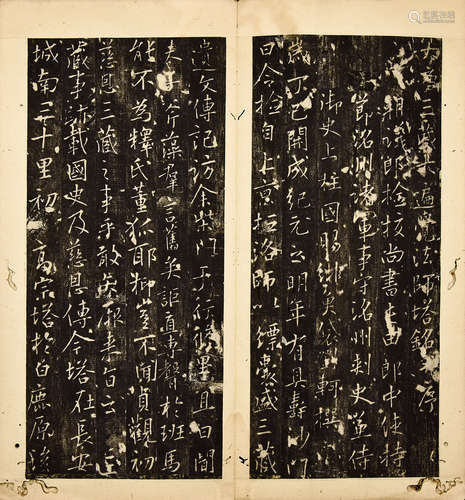 大唐三藏大遍覺法師塔銘并序
朝議郎檢校尚書屯田郎中使持
節洺州諸軍事守洺州刺史兼侍
御史上柱國賜緋魚袋劉軻撰
歲丁巳開成紀元之明年有具壽沙門
曰令檢自上京抵洛師以縹囊盛三藏
遺文傳記訪余柴門于行脩里且曰聞
夫子斧藻羣言舊矣詎直專聲於班馬
能不為釋氏董狐耶抑豈不聞貞觀初
慈恩三藏之事乎敢矢厥來旨云三
藏事跡載國史及慈恩傳今塔在長安
城南三十里初高宗塔於白鹿原後